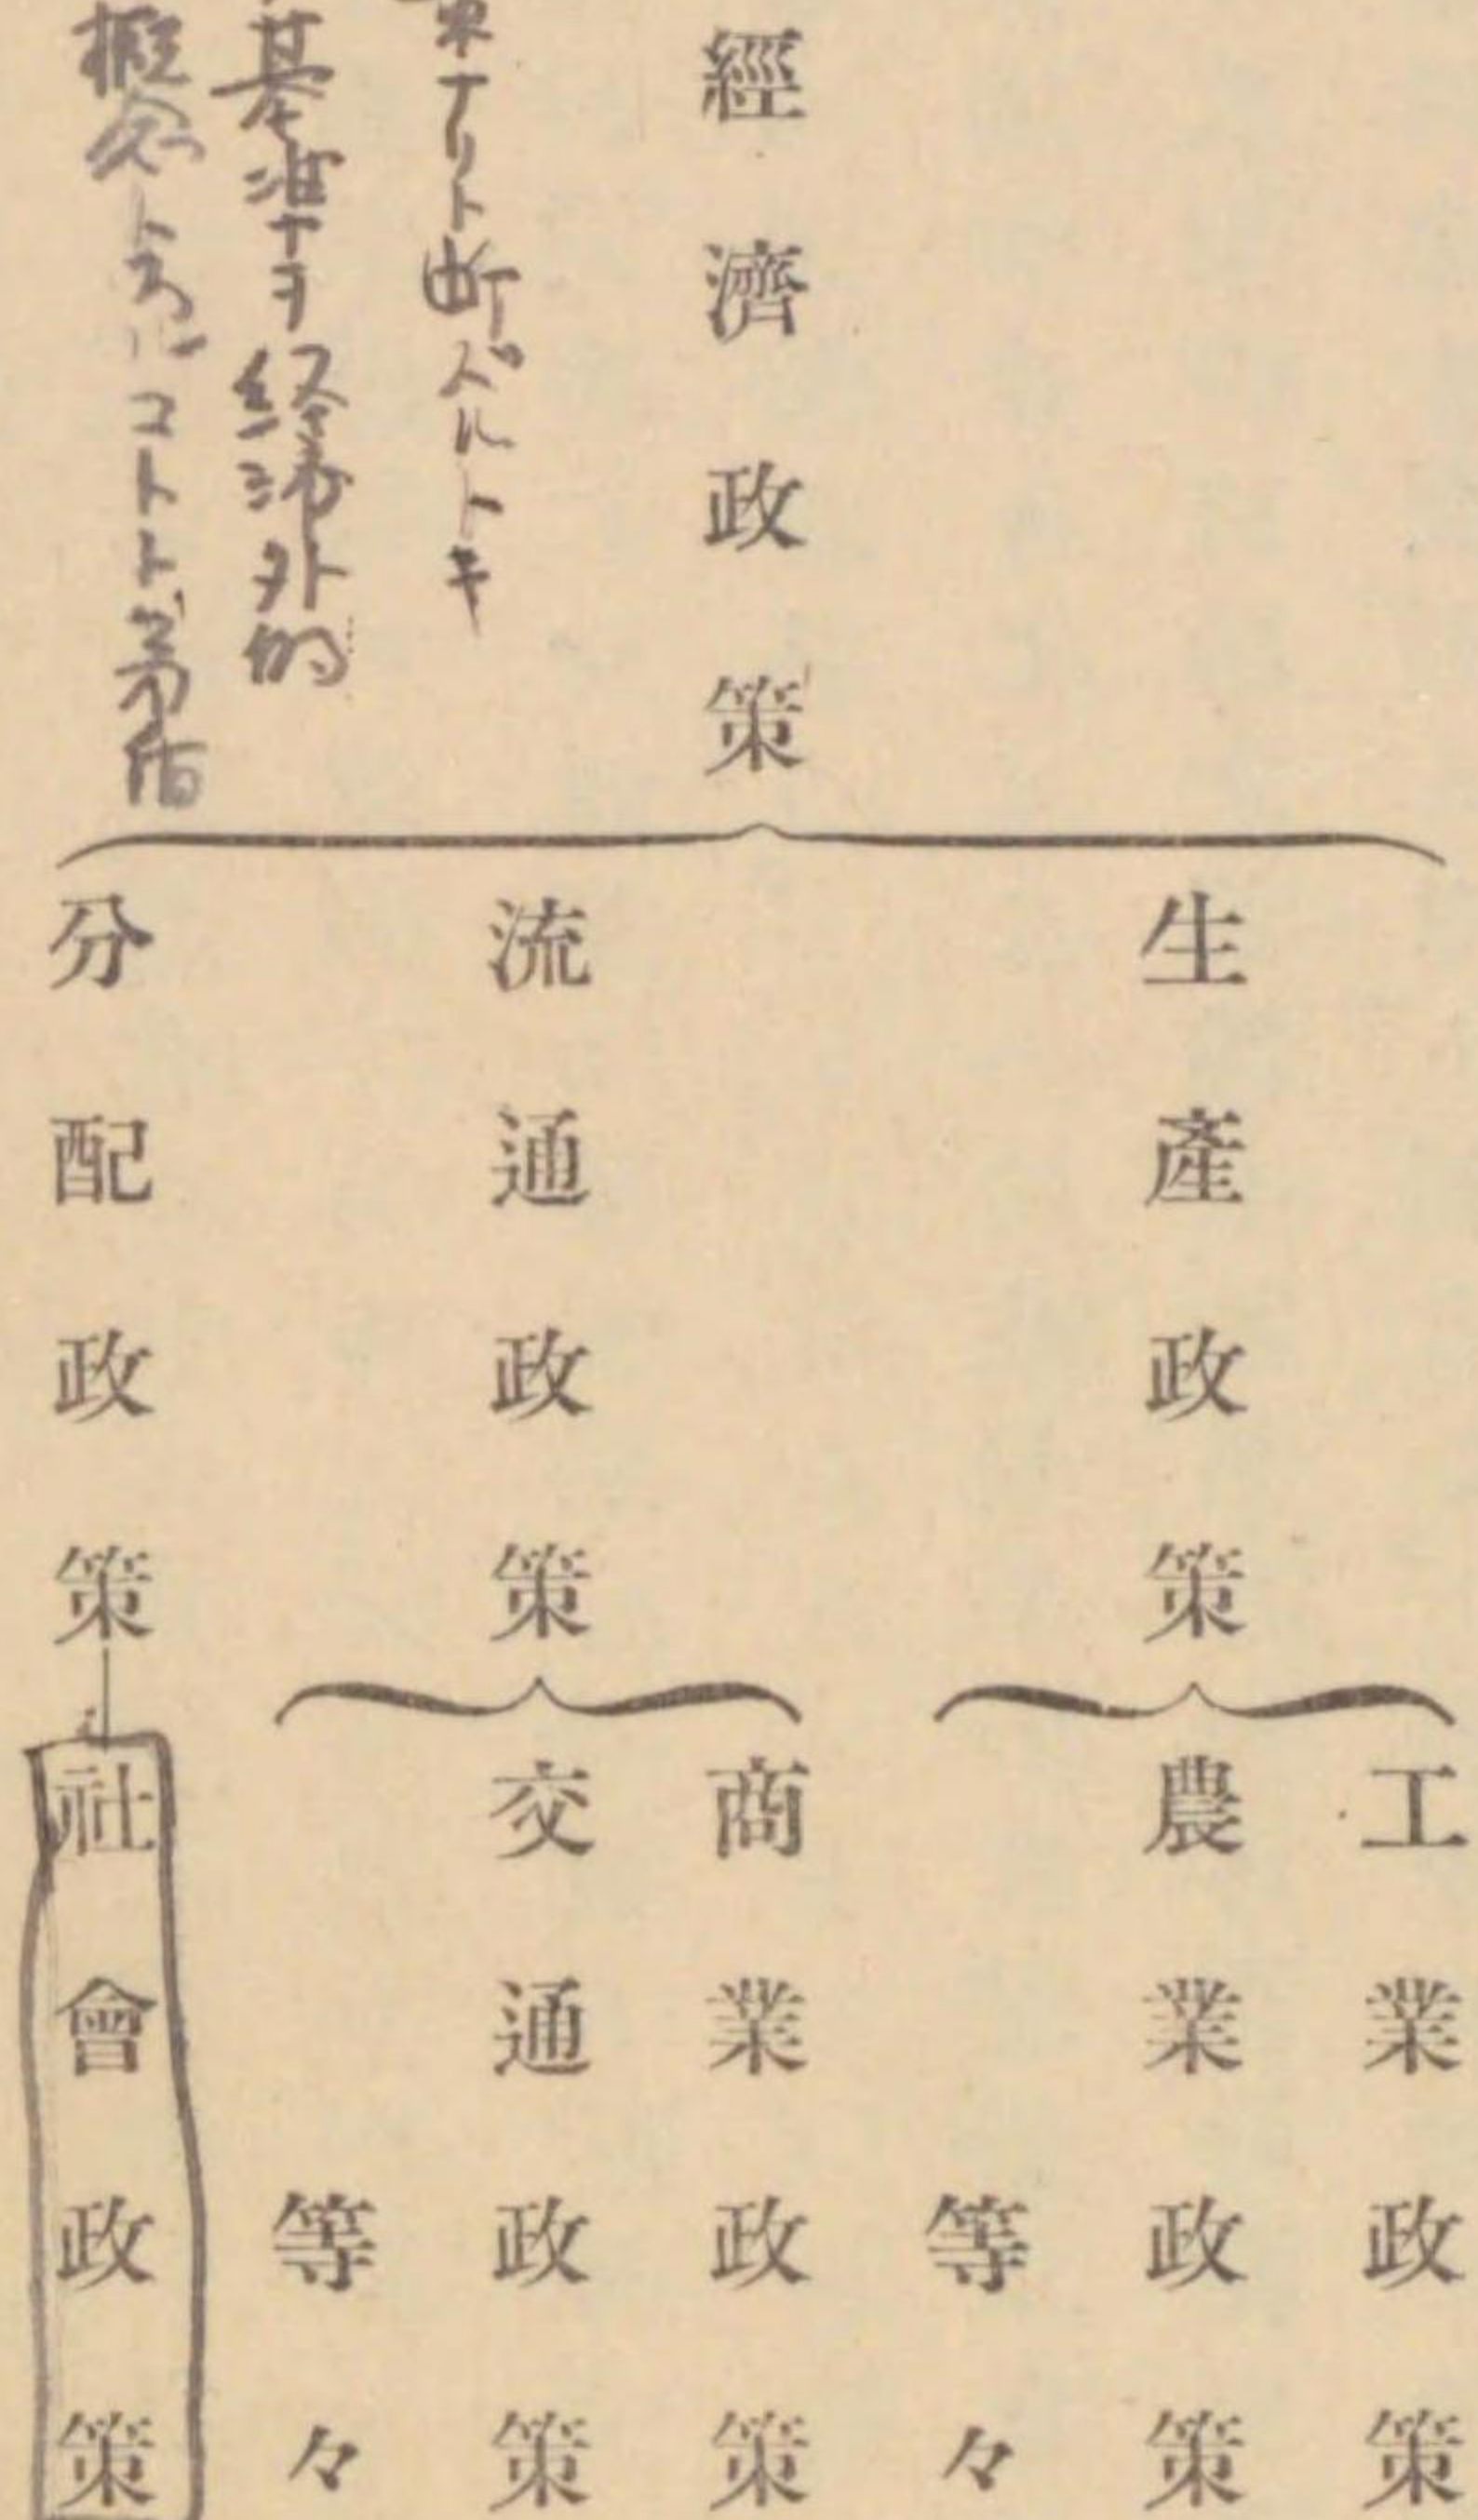 經濟政策
生產政策
工業政策
農業政策
等々
流通政策
商業政策
交通政策
等々
分配政策
社會政策
策ナリト断ズベルトキ
基準ヲ経済外的
概念トスルコトト矛盾